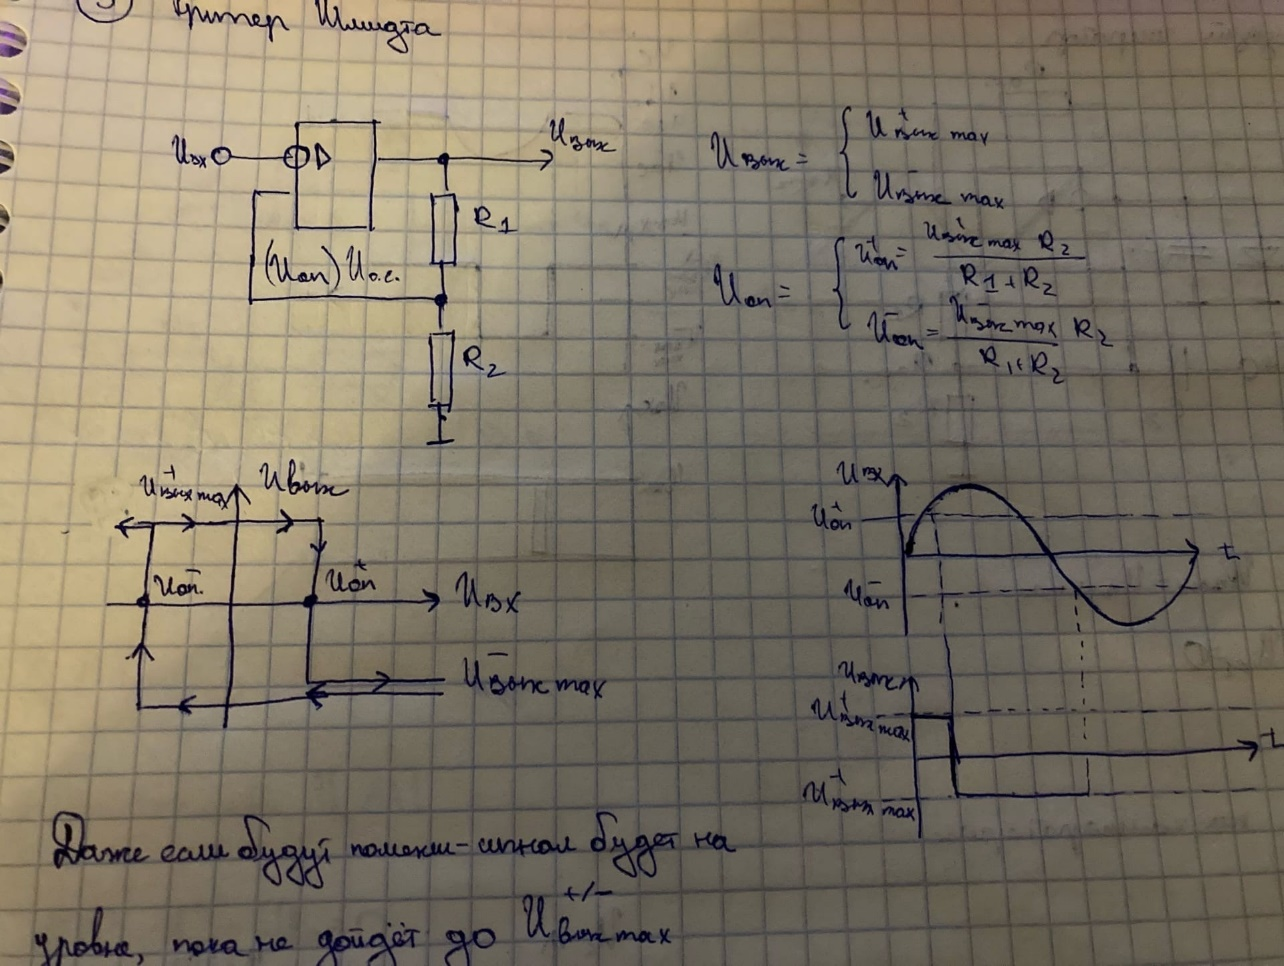 3 Триггер Шмидта
Uвх
Uвых
R1
(Uоп) Uо.с.
R2
Uвых = { U⁺вых max
U⁻вых max
Uоп = { U⁺оп = U⁺вых max R2 / R1 + R2
U⁻оп = U⁻вых max / R1 + R2 R2
U⁺вых max
Uвых
U⁻оп.
U⁺оп
Uвх
U⁻вых max
Uвх
U⁺оп
t
U⁻оп
Uвых
U⁺вых max
t
U⁺вых max
Даже если будут помехи - сигнал будет на
уровне, пока не дойдёт до U⁺/⁻вых max